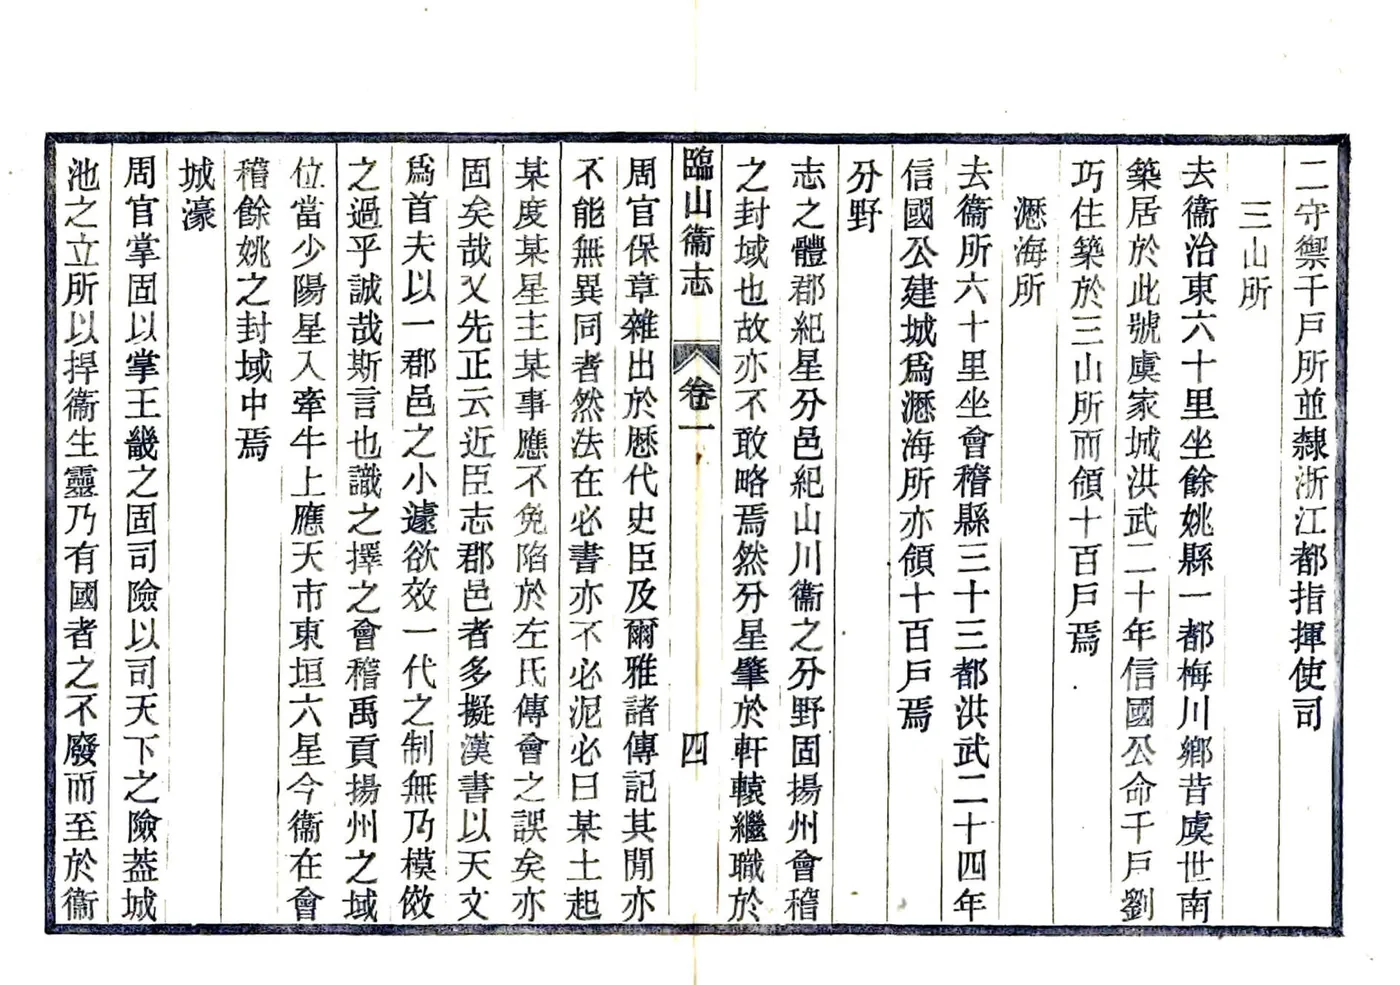 二守禦千戶所並隸浙江都指揮使司
三山所
去衞治東六十里坐餘姚縣一都梅川鄉昔虞世南
築居於此號虞家城洪武二十年信國公命千戶劉
巧住築於三山所而領十百戶焉
瀝海所
去衞所六十里坐會稽縣三十三都洪武二十四年
信國公建城爲瀝海所亦領十百戶焉
分野
志之體郡紀星分邑紀山川衞之分野固揚州會稽
之封域也故亦不敢略焉然分星肇於軒轅繼職於
臨山衞志 卷一 四
周官保章雜出於歷代史臣及爾雅諸傳記其閒亦
不能無異同者然法在必書亦不必泥必曰某土起
某度某星主某事應不免陷於左氏傅會之誤矣亦
固矣哉又先正云近臣志郡邑者多擬漢書以天文
爲首夫以一郡邑之小遽欲效一代之制無乃模倣
之過乎誠哉斯言也識之擇之會稽禹貢揚州之域
位當少陽星入牽牛上應天市東垣六星今衞在會
稽餘姚之封域中焉
城濠
周官掌固以掌王畿之固司險以司天下之險葢城
池之立所以捍衞生靈乃有國者之不廢而至於衞